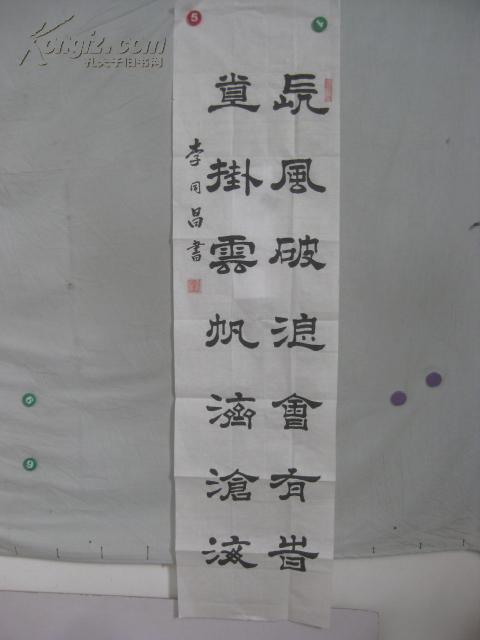 長風破浪會有時
直掛雲帆濟滄海
李同昌書
Kongfz.com
孔夫子旧书网
5
4
6
9